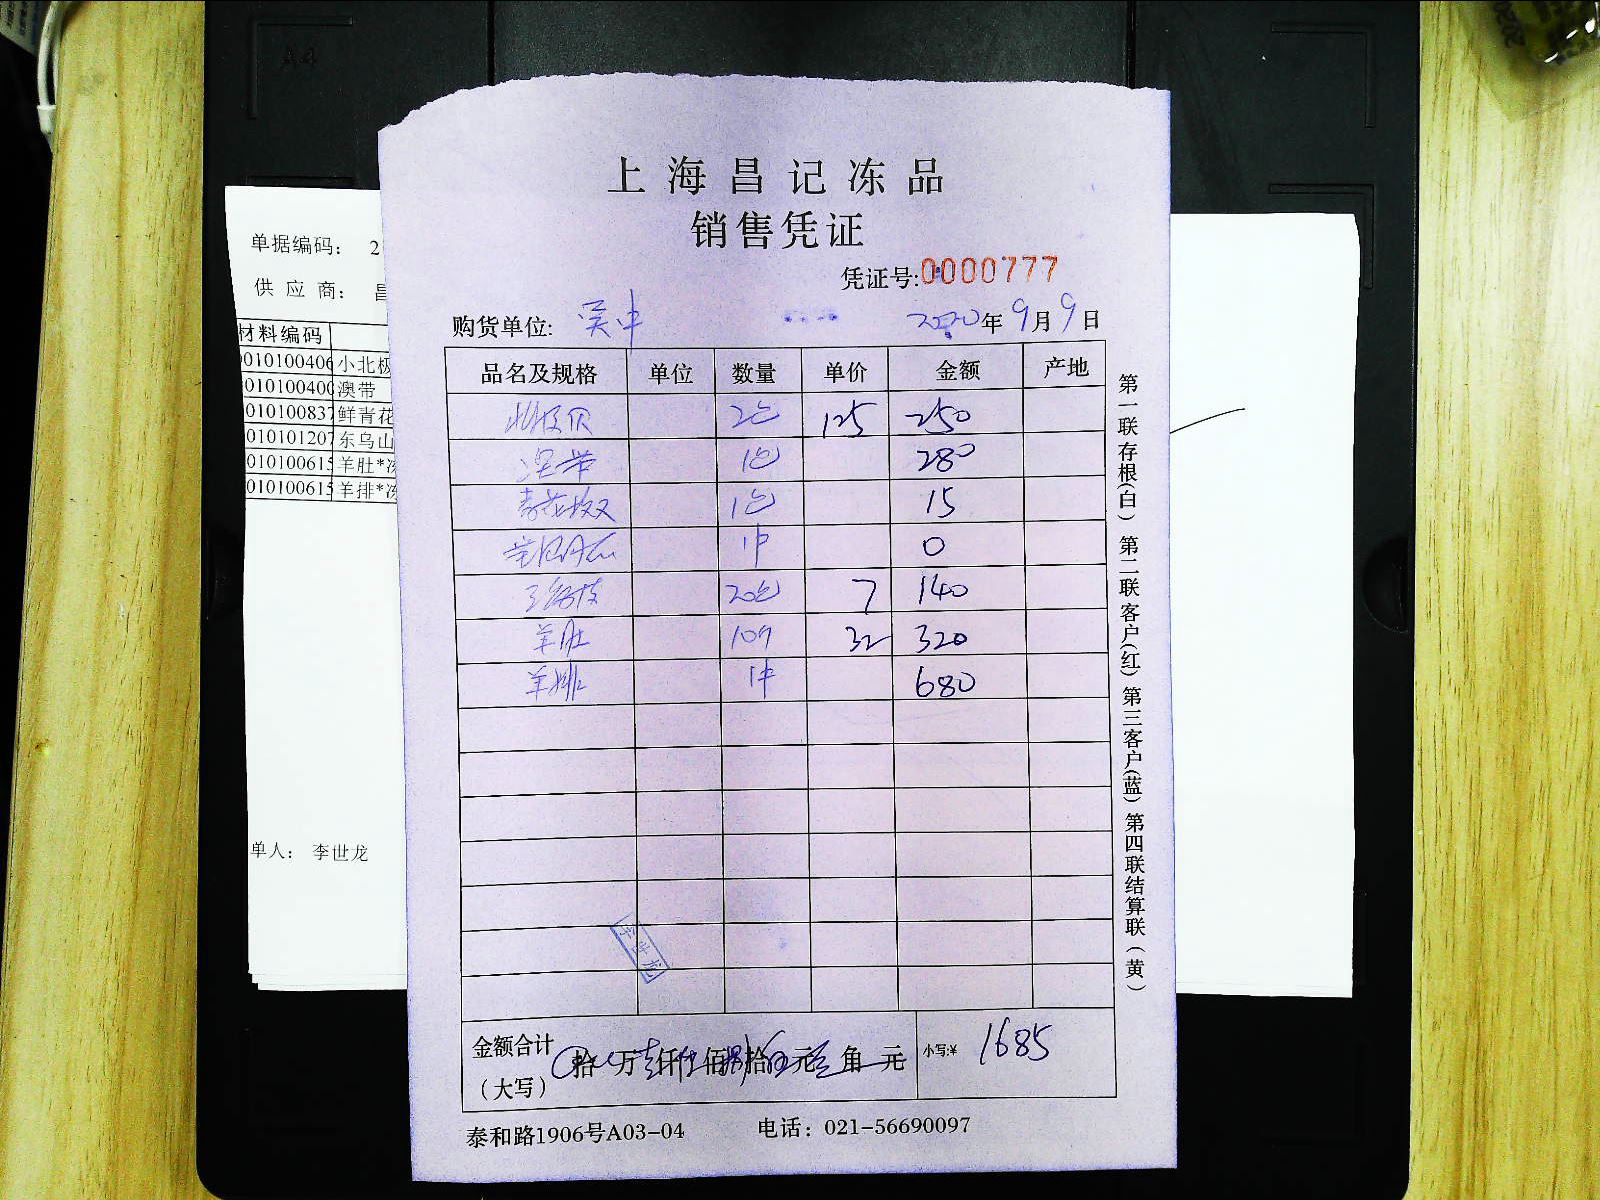 A4
上海昌记冻品
销售凭证
凭证号:0000777
购货单位: 吴中 2020年9月9日
品名及规格 单位 数量 单价 金额 产地
北极贝 2包 125 250
澳带 1包 280
青花椒 1包 15
1件 0
20包 7 140
羊肚 10斤 32 320
羊排 1件 680
金额合计 拾 万 壹 仟 陆 佰 捌 拾 伍 元 角 元 小写:¥ 1685
(大写)
泰和路1906号A03-04 电话: 021-56690097
第一联存根(白) 第二联客户(红) 第三客户(蓝) 第四联结算联(黄)
李世龙
单据编码: 2
供应商: 昌
材料编码
010100406 小北极
010100400 澳带
010100837 鲜青花
010101207 东乌山
010100615 羊肚*冻
010100615 羊排*冻
单人: 李世龙